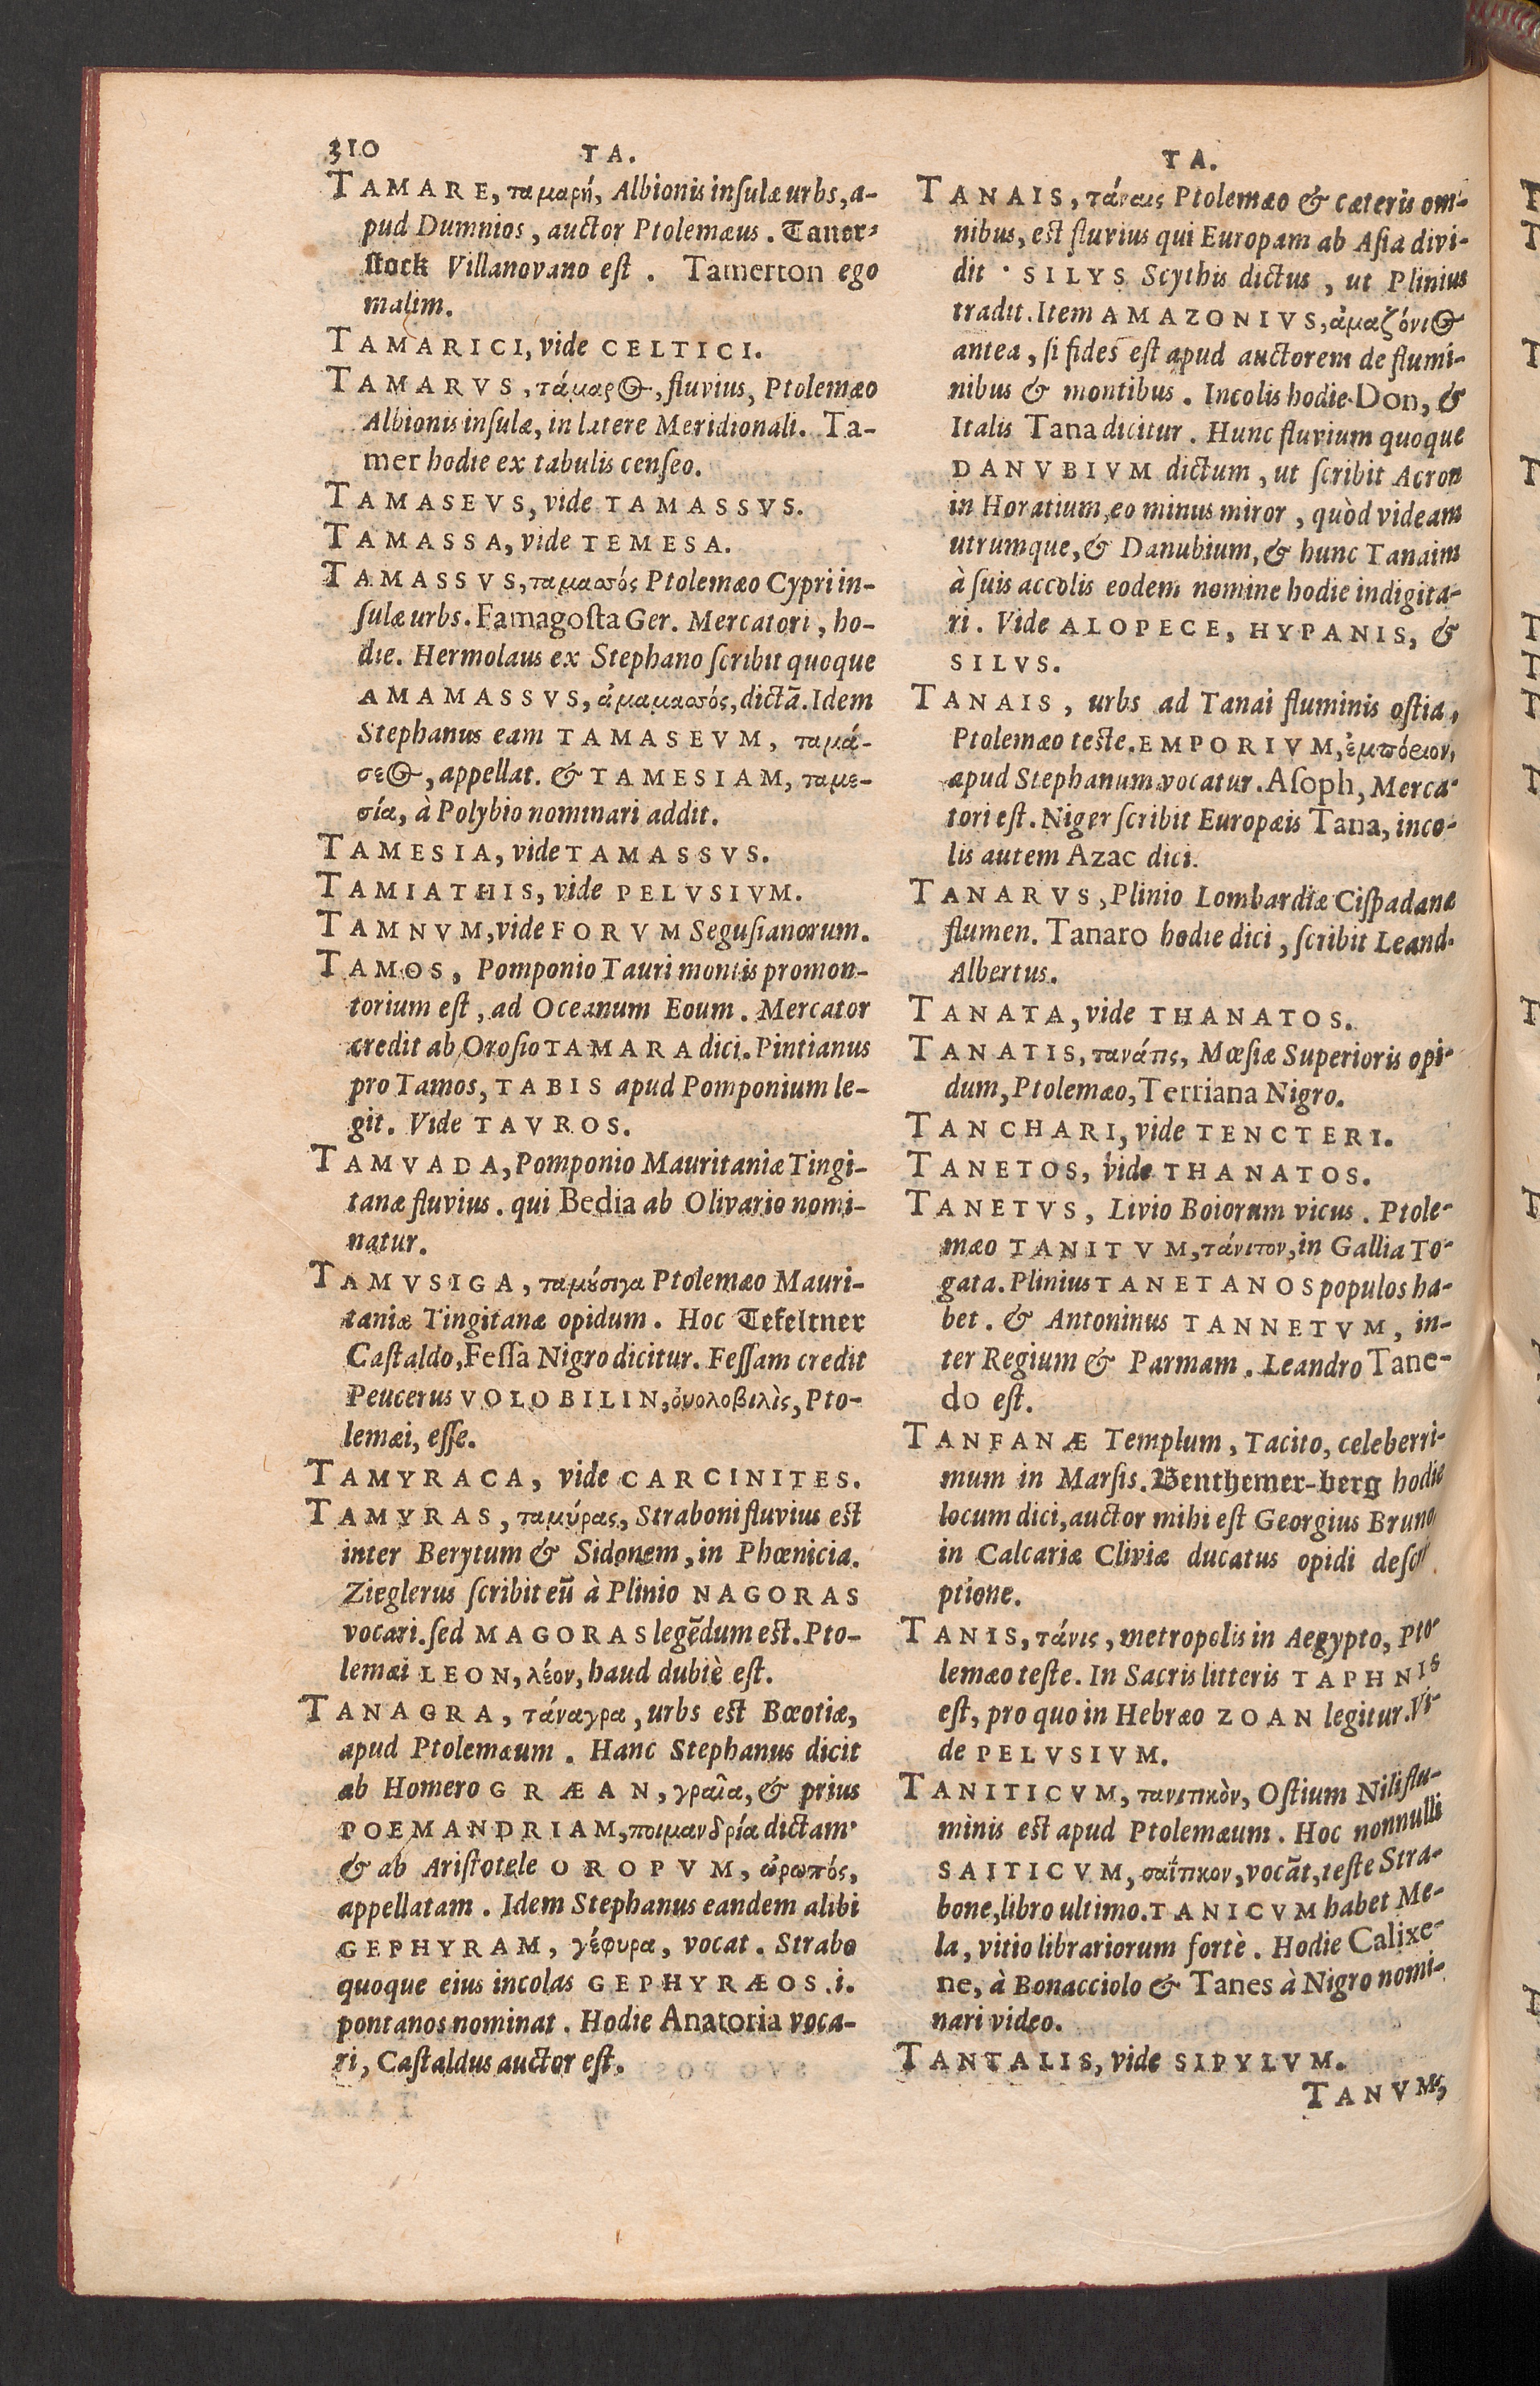 310 TA.
TAMARE, ταμαρή, Albionis insulæ urbs, a-
pud Dumnios, auctor Ptolemæus. Tauer-
stock Villanovano est. Tamerton ego
malim.
TAMARICI, vide CELTICI.
TAMARVS, τάμαρος, fluvius, Ptolemæo
Albionis insulæ, in latere Meridionali. Ta-
mer hodie ex tabulis censeo.
TAMASEVS, vide TAMASSVS.
TAMASSA, vide TEMESA.
TAMASSVS, ταμασσός Ptolemæo Cypri in-
sulæ urbs. Famagosta Ger. Mercatori, ho-
die. Hermolaus ex Stephano scribit quoque
AMAMASSVS, ἀμαμασσός, dictã. Idem
Stephanus eam TAMASEVM, ταμά-
σεος, appellat. & TAMESIAM, ταμε-
σία, à Polybio nominari addit.
TAMESIA, vide TAMASSVS.
TAMIATHIS, vide PELVSIVM.
TAMNVM, vide FORVM Segusianorum.
TAMOS, Pomponio Tauri montis promon-
torium est, ad Oceanum Eoum. Mercator
credit ab Orosio TAMARA dici. Pintianus
pro Tamos, TABIS apud Pomponium le-
git. Vide TAVROS.
TAMVADA, Pomponio Mauritaniæ Tingi-
tanæ fluvius. qui Bedia ab Olivario nomi-
natur.
TAMVSIGA, ταμούσιγα Ptolemæo Mauri-
taniæ Tingitanæ opidum. Hoc Tefeltner
Castaldo, Fessa Nigro dicitur. Fessam credit
Peucerus VOLOBILIN, ὀυολοβιλὶς, Pto-
lemæi, esse.
TAMYRACA, vide CARCINITES.
TAMYRAS, ταμύρας, Straboni fluvius est
inter Berytum & Sidonem, in Phœnicia.
Zieglerus scribit eũ à Plinio NAGORAS
vocari. sed MAGORAS legẽdum est. Pto-
lemæi LEON, λέον, haud dubiè est.
TANAGRA, τάναγρα, urbs est Bœotiæ,
apud Ptolemæum. Hanc Stephanus dicit
ab Homero GRÆAN, γραῖα, & prius
POEMANDRIAM, ποιμανδρία dictam.
& ab Aristotele OROPVM, ὠρωπός,
appellatam. Idem Stephanus eandem alibi
GEPHYRAM, γέφυρα, vocat. Strabo
quoque eius incolas GEPHYRÆOS .i.
pontanos nominat. Hodie Anatoria voca-
ri, Castaldus auctor est.
TA.
TANAIS, τάναις Ptolemæo & cæteris om-
nibus, est fluvius qui Europam ab Asia divi-
dit. SILYS Scythis dictus, ut Plinius
tradit. Item AMAZONIVS, ἀμαζόνιος
antea, si fides est apud auctorem de flumi-
nibus & montibus. Incolis hodie Don, &
Italis Tana dicitur. Hunc fluvium quoque
DANVBIVM dictum, ut scribit Acron
in Horatium, eo minus miror, quòd videam
utrumque, & Danubium, & hunc Tanaim
à suis accolis eodem nomine hodie indigita-
ri. Vide ALOPECE, HYPANIS, &
SILVS.
TANAIS, urbs ad Tanai fluminis ostia,
Ptolemæo teste. EMPORIVM, ἐμπόριον,
apud Stephanum vocatur. Asoph, Merca-
tori est. Niger scribit Europæis Tana, inco-
lis autem Azac dici.
TANARVS, Plinio Lombardiæ Cispadanæ
flumen. Tanaro hodie dici, scribit Leand.
Albertus.
TANATA, vide THANATOS.
TANATIS, τανάτις, Mœsiæ Superioris opi-
dum, Ptolemæo, Terriana Nigro.
TANCHARI, vide TENCTERI.
TANETOS, vide THANATOS.
TANETVS, Livio Boiorum vicus. Ptole-
mæo TANITVM, τάνιτον, in Gallia To-
gata. Plinius TANETANOS populos ha-
bet. & Antoninus TANNETVM, in-
ter Regium & Parmam. Leandro Tane-
do est.
TANFANÆ Templum, Tacito, celeberri-
mum in Marsis. Benthemer-berg hodie
locum dici, auctor mihi est Georgius Bruno
in Calcariæ Cliviæ ducatus opidi descri-
ptione.
TANIS, τάνις, metropolis in Aegypto, Pto-
lemæo teste. In Sacris litteris TAPHNIS
est, pro quo in Hebræo ZOAN legitur. Vi-
de PELVSIVM.
TANITICVM, τανιτικὸν, Ostium Nili flu-
minis est apud Ptolemæum. Hoc nonnulli
SAITICVM, σαΐτικον, vocãt, teste Stra-
bone, libro ultimo. TANICVM habet Me-
la, vitio librariorum fortè. Hodie Calixe-
ne, à Bonacciolo & Tanes à Nigro nomi-
nari video.
TANTALIS, vide SIPYLVM.
TANVM,